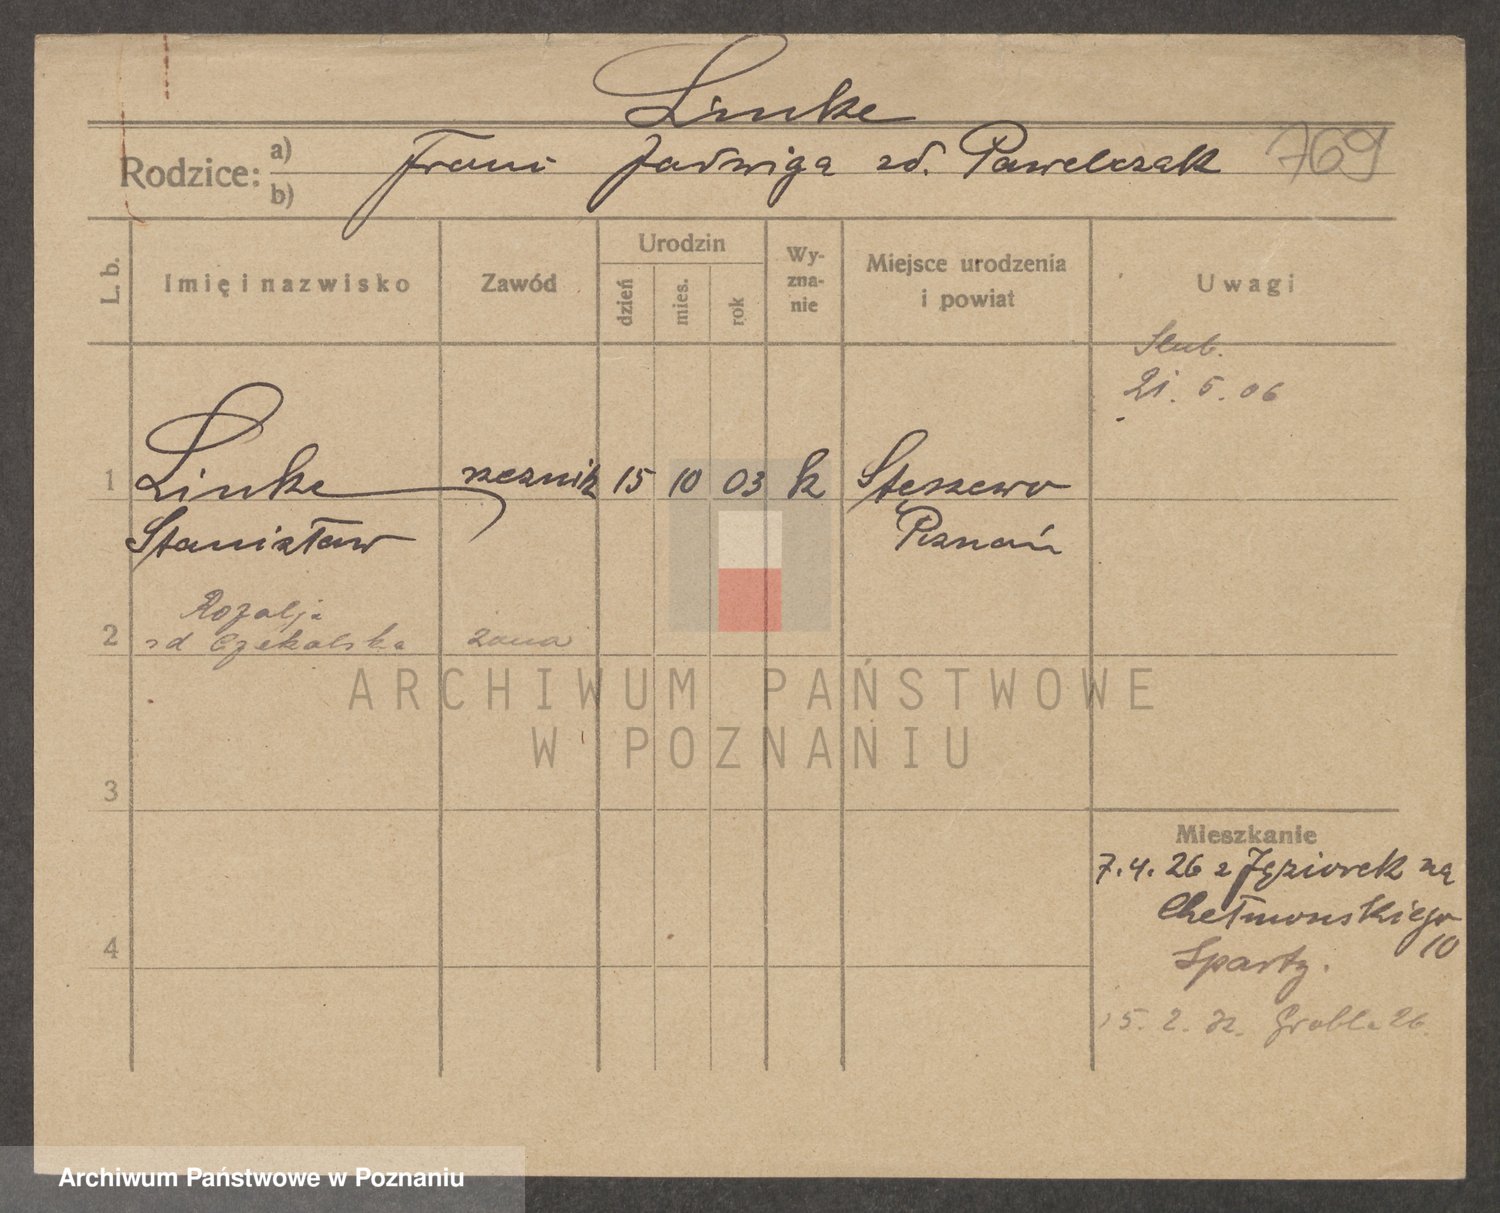 Linke
Rodzice: a) b)
Franc Jadwiga zd. Pawelczak 769
L. b.
Imię i nazwisko
Zawód
Urodzin
dzień
mies.
rok
Wy-
zna-
nie
Miejsce urodzenia
i powiat
Uwagi
Slub.
21. 5. 06
1 Linke rzeznik 15 10 03 k Stęszewo
Stanisław Poznań
Rozalja
2 zd Czekalska zona
3
Mieszkanie
7.4.26 z Jęziorek na
Chełmonskiego
10
4
15. 2. 32. Grobla 26.
ARCHIWUM PAŃSTWOWE
W POZNANIU
Archiwum Państwowe w Poznaniu